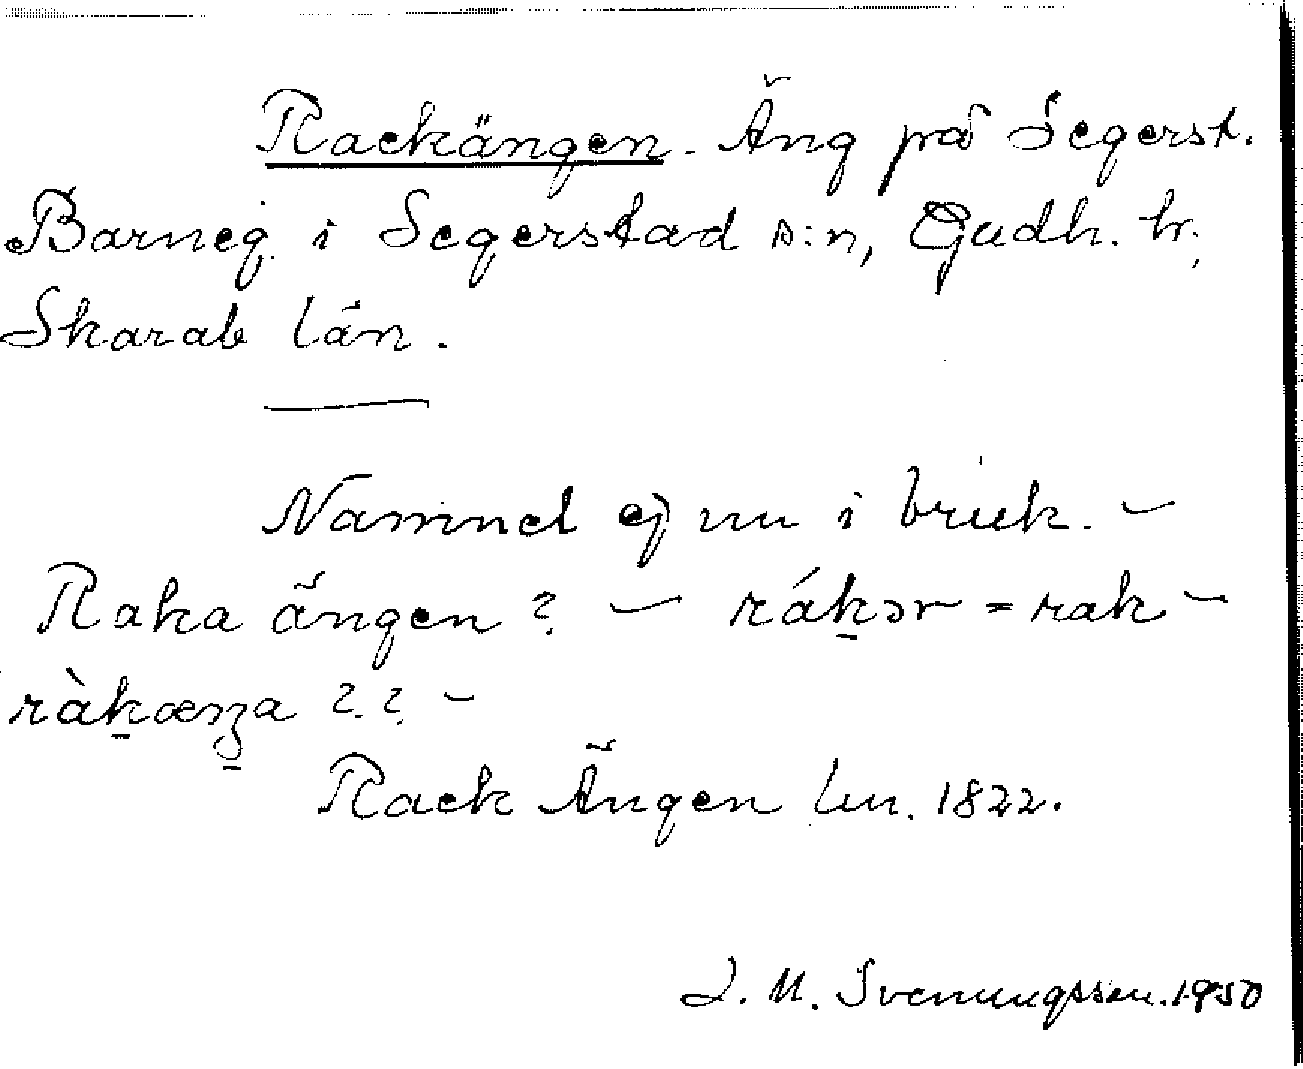 Rackängen. Äng på Segerst.
Barneg. i Segerstad s:n, Gudh. hr.,
Skarab län.
Namnet ej nu i bruk. –
Raka ängen? – rákər = rak –
ràkæŋa ?.?. –
Rack Ängen lm. 1822.
J. M. Svenungsson. 1950